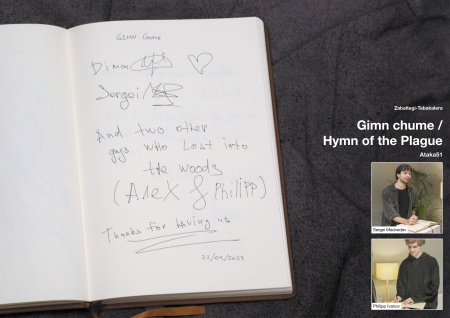 GIMN CHUME
Dima
Sergei
And two other
guys who Lost into
the woods
(Alex & Philipp)
Thanks for having us
22/09/2024
Zabaltegi-Tabakalera
Gimn chume /
Hymn of the Plague
Ataka51
Sergei Medvedev
Philipp Ivanov